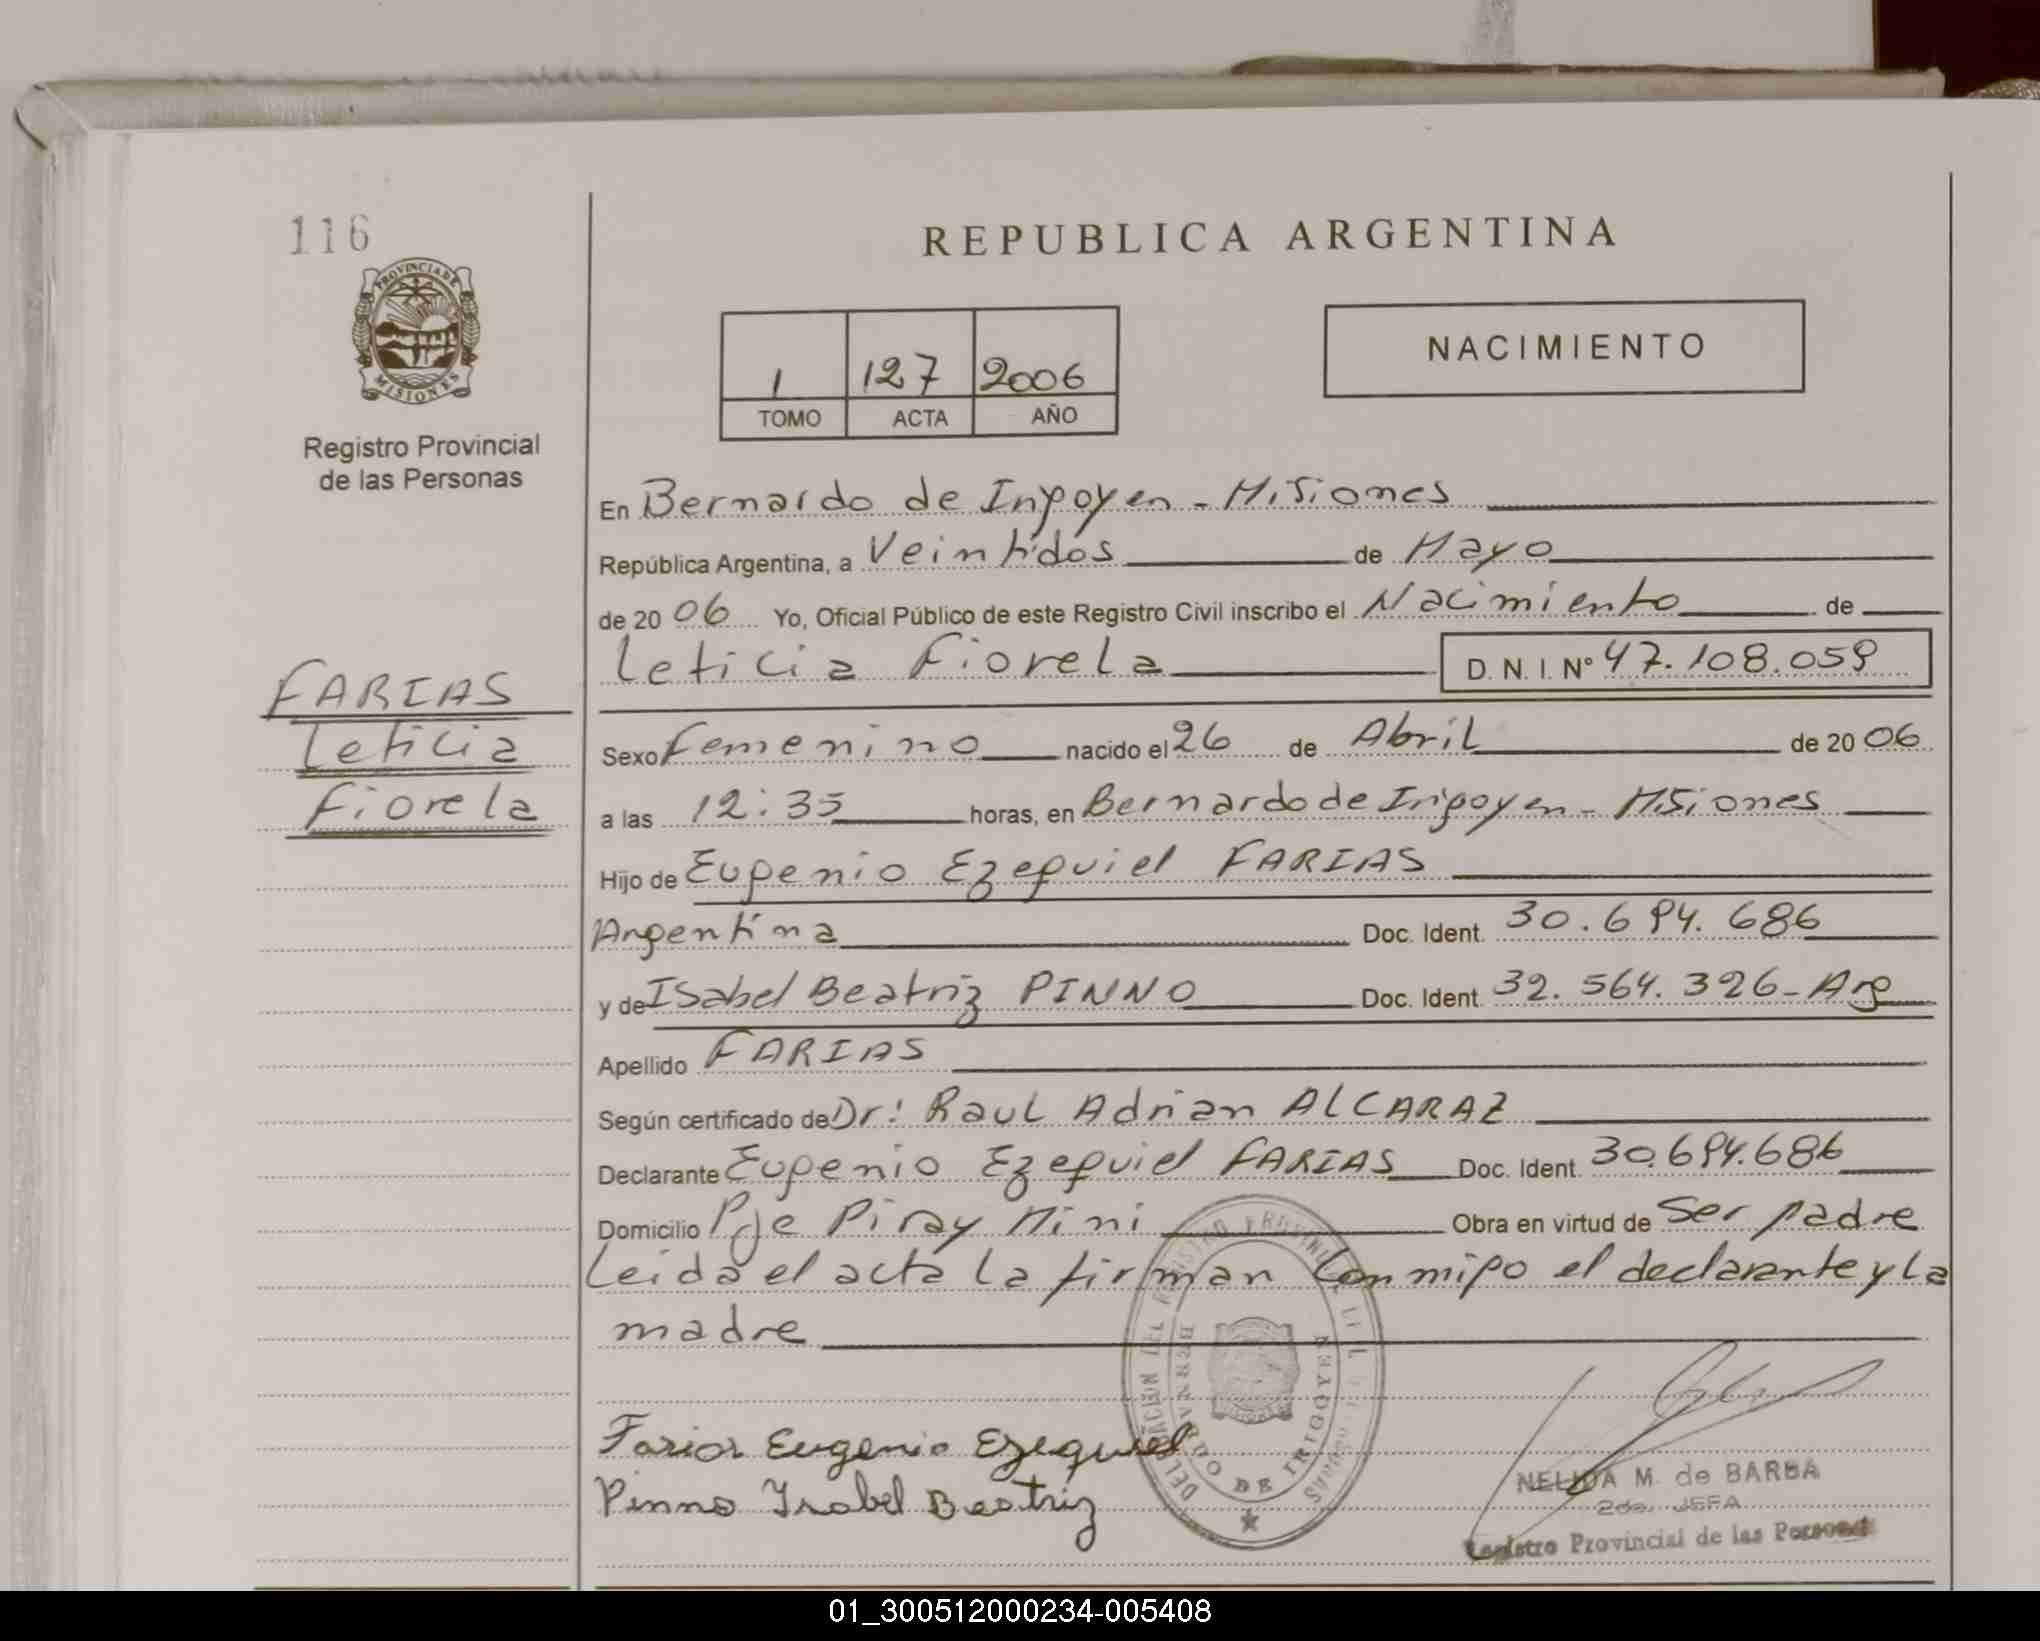 116
PROVINCIA DE
MISIONES
Registro Provincial
de las Personas
REPUBLICA ARGENTINA
1 127 2006
TOMO ACTA AÑO
NACIMIENTO
En Bernardo de Irigoyen - Misiones
República Argentina, a Veintidos de Mayo
de 20 06 Yo, Oficial Público de este Registro Civil inscribo el Nacimiento de
Leticia Fiorela D. N. I. N° 47.108.059
FARIAS
Leticia
Fiorela
Sexo Femenino nacido el 26 de Abril de 20 06
a las 12:35 horas, en Bernardo de Irigoyen - Misiones
Hijo de Eugenio Ezequiel FARIAS
Argentina Doc. Ident. 30.694.686
y de Isabel Beatriz PINNO Doc. Ident. 32.564.326 - Arg
Apellido FARIAS
Según certificado de Dr: Raul Adrian ALCARAZ
Declarante Eugenio Ezequiel FARIAS Doc. Ident. 30.694.686
Domicilio Pje Piray Mini Obra en virtud de Ser padre
Leida el acta la firman conmigo el declarante y la
madre
Farias Eugenio Ezequiel
Pinno Isabel Beatriz
BERNARDO DE IRIGOYEN
NELIDA M. de BARBA
2da. JEFA
Registro Provincial de las Personas
01_300512000234-005408